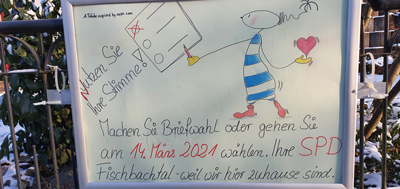 Nutzen Sie
Ihre Stimme!
Machen Sie Briefwahl oder gehen Sie
am 14. März 2021 wählen. Ihre SPD
Fischbachtal - weil wir hier zuhause sind.